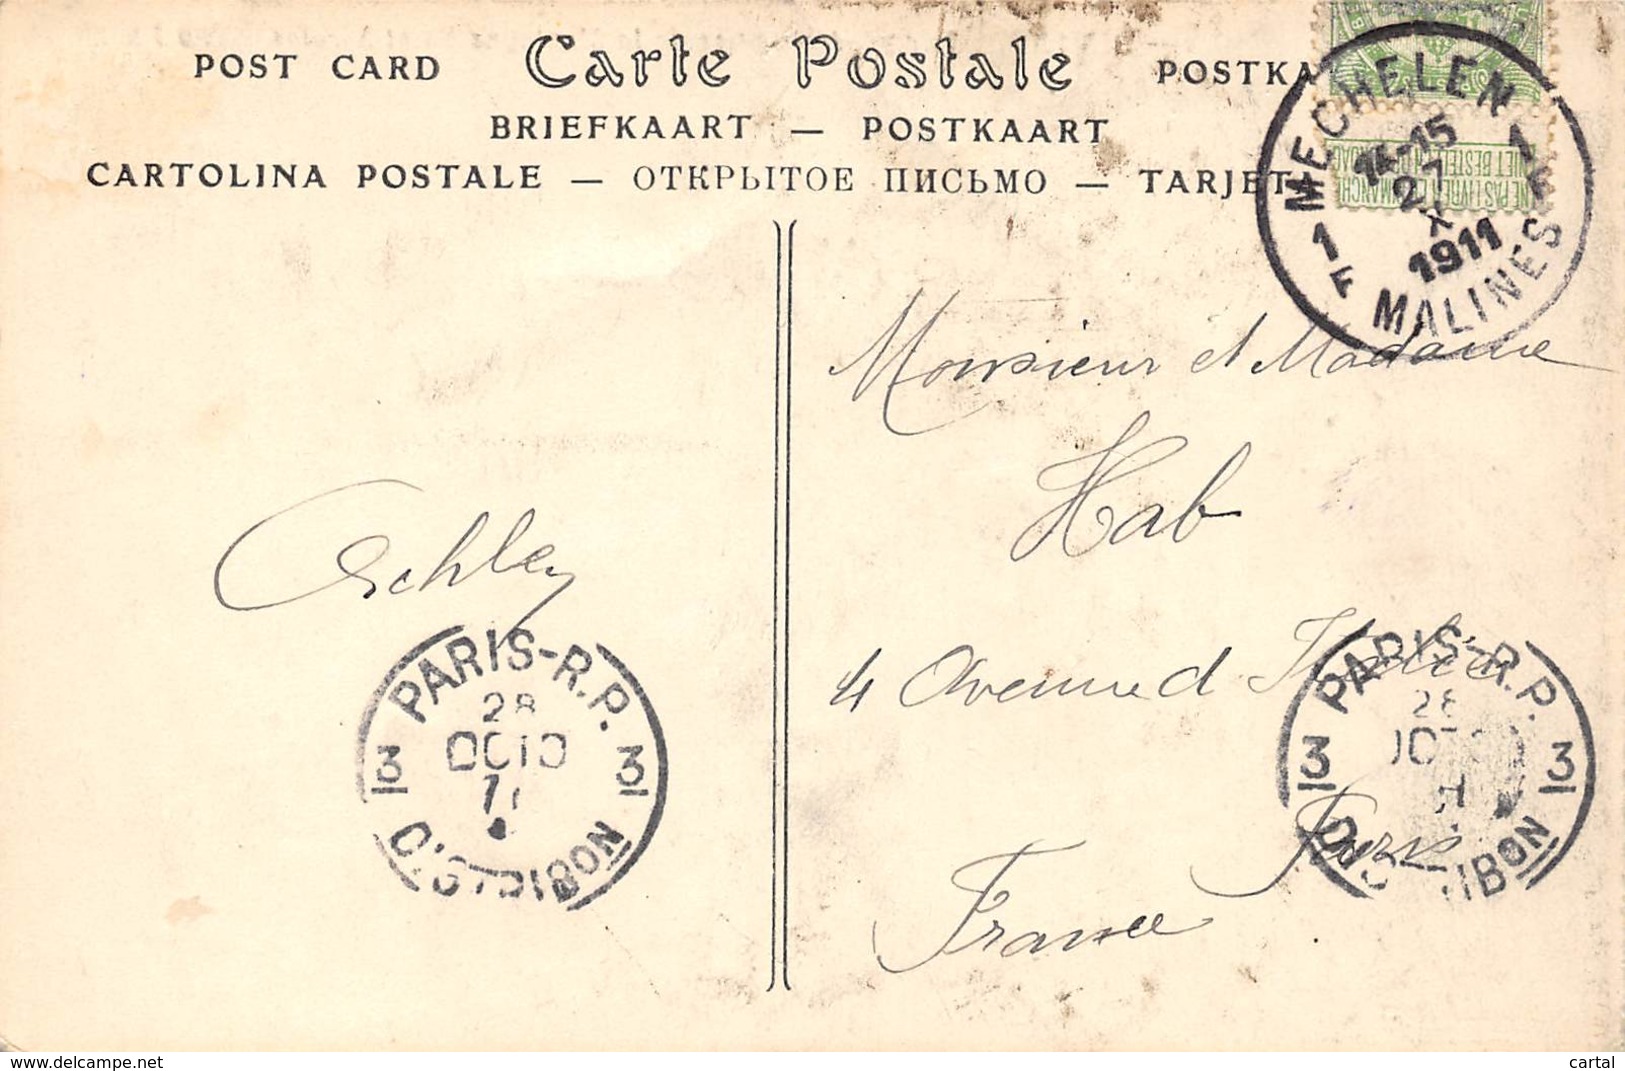 POST CARD Carte Postale POSTKA
BRIEFKAART — POSTKAART
CARTOLINA POSTALE — ОТКРЫТОЕ ПИСЬМО — TARJET
MECHELEN
14-15
27
X
1911
1 F
1 F
MALINES
NE PAS LIVRER LE DIMANCHE
NIET BESTELLEN OP ZONDAG
Monsieur et Madame
Hab
4 Avenue d'
Paris
France
PARIS-R.P.
28
OCTO
11
3 3
DISTRIBON
PARIS-R.P.
28
3 3
DISTRIBON
www.delcampe.net
cartal